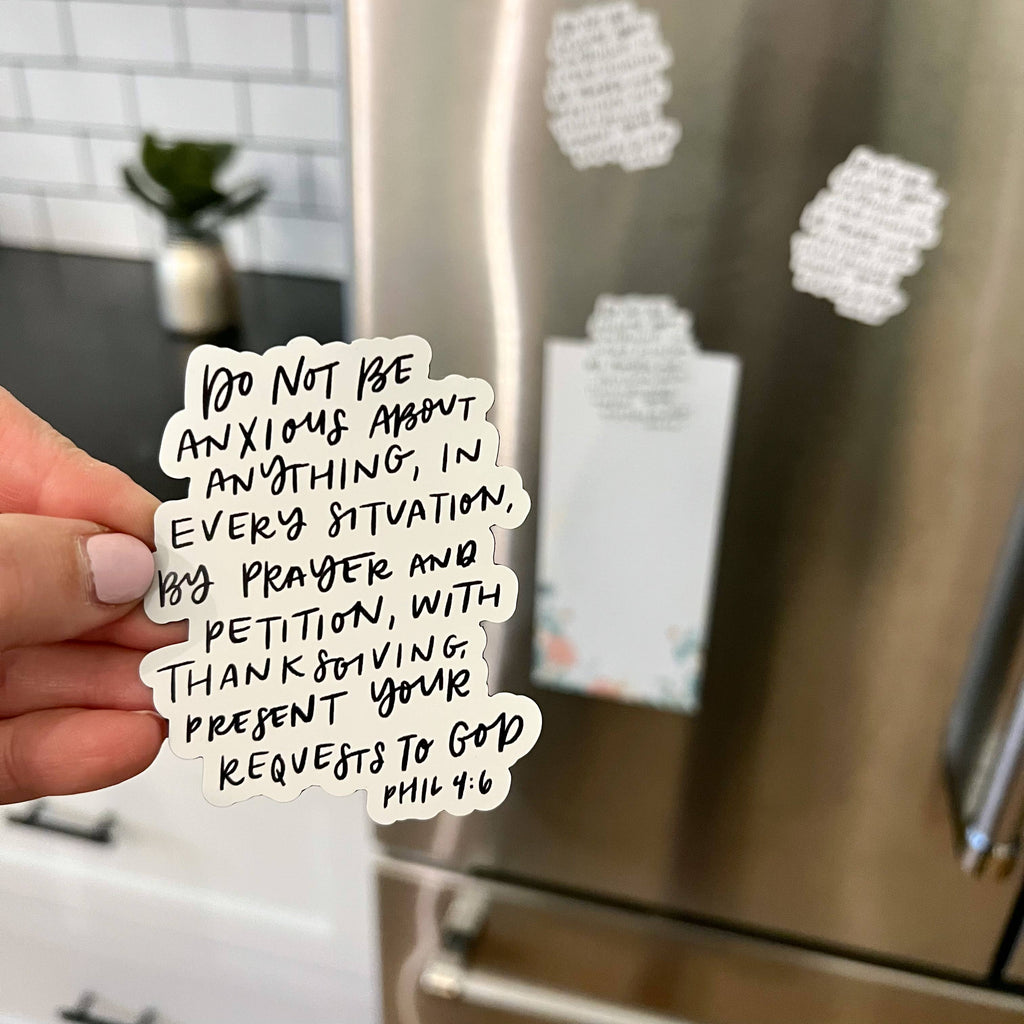 DO NOT BE
ANXIOUS ABOUT
ANYTHING, IN
EVERY SITUATION,
BY PRAYER AND
PETITION, WITH
THANKSGIVING,
PRESENT YOUR
REQUESTS TO GOD
PHIL 4:6